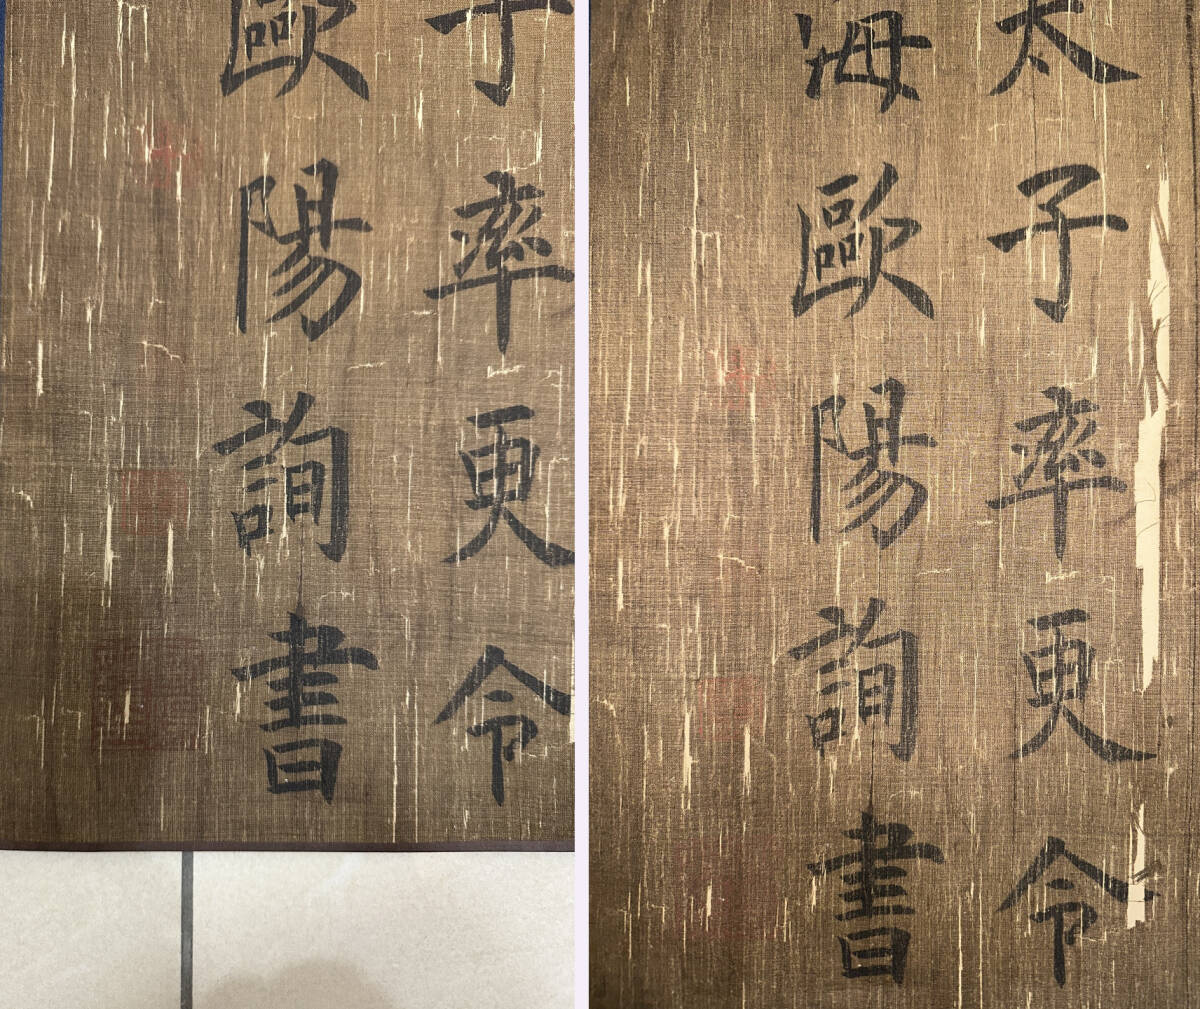 子率更令
歐陽詢書
太子率更令
海歐陽詢書